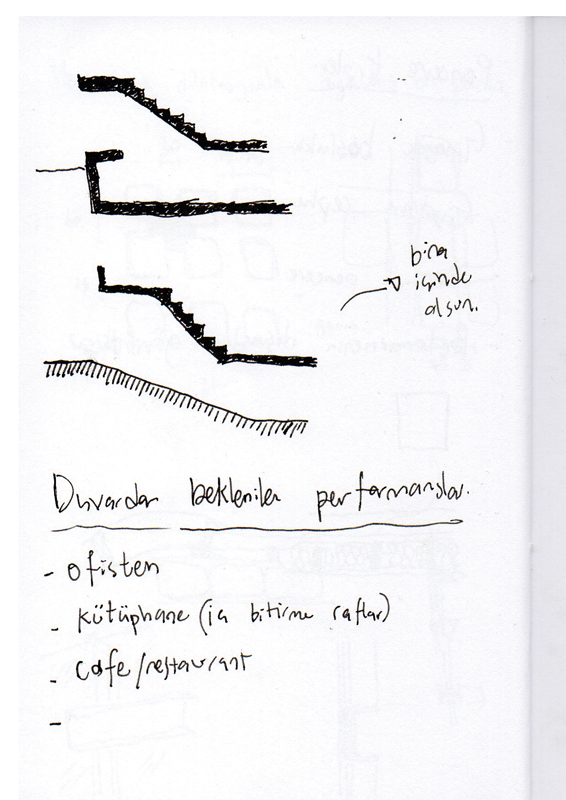 bina
içinde
olsun.
Duvardan beklenilen performanslar.
- ofisten
- kütüphane (iç bitirme raflar)
- cafe/restaurant
-